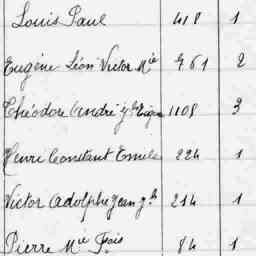 Louis Paul 418 1
Eugène Léon Victor Mie 761 2
Théodore André 1108 3
Henri Constant Emile 224 1
Victor Adolphe Jean 214 1
Pierre Mie Fçois 84 1